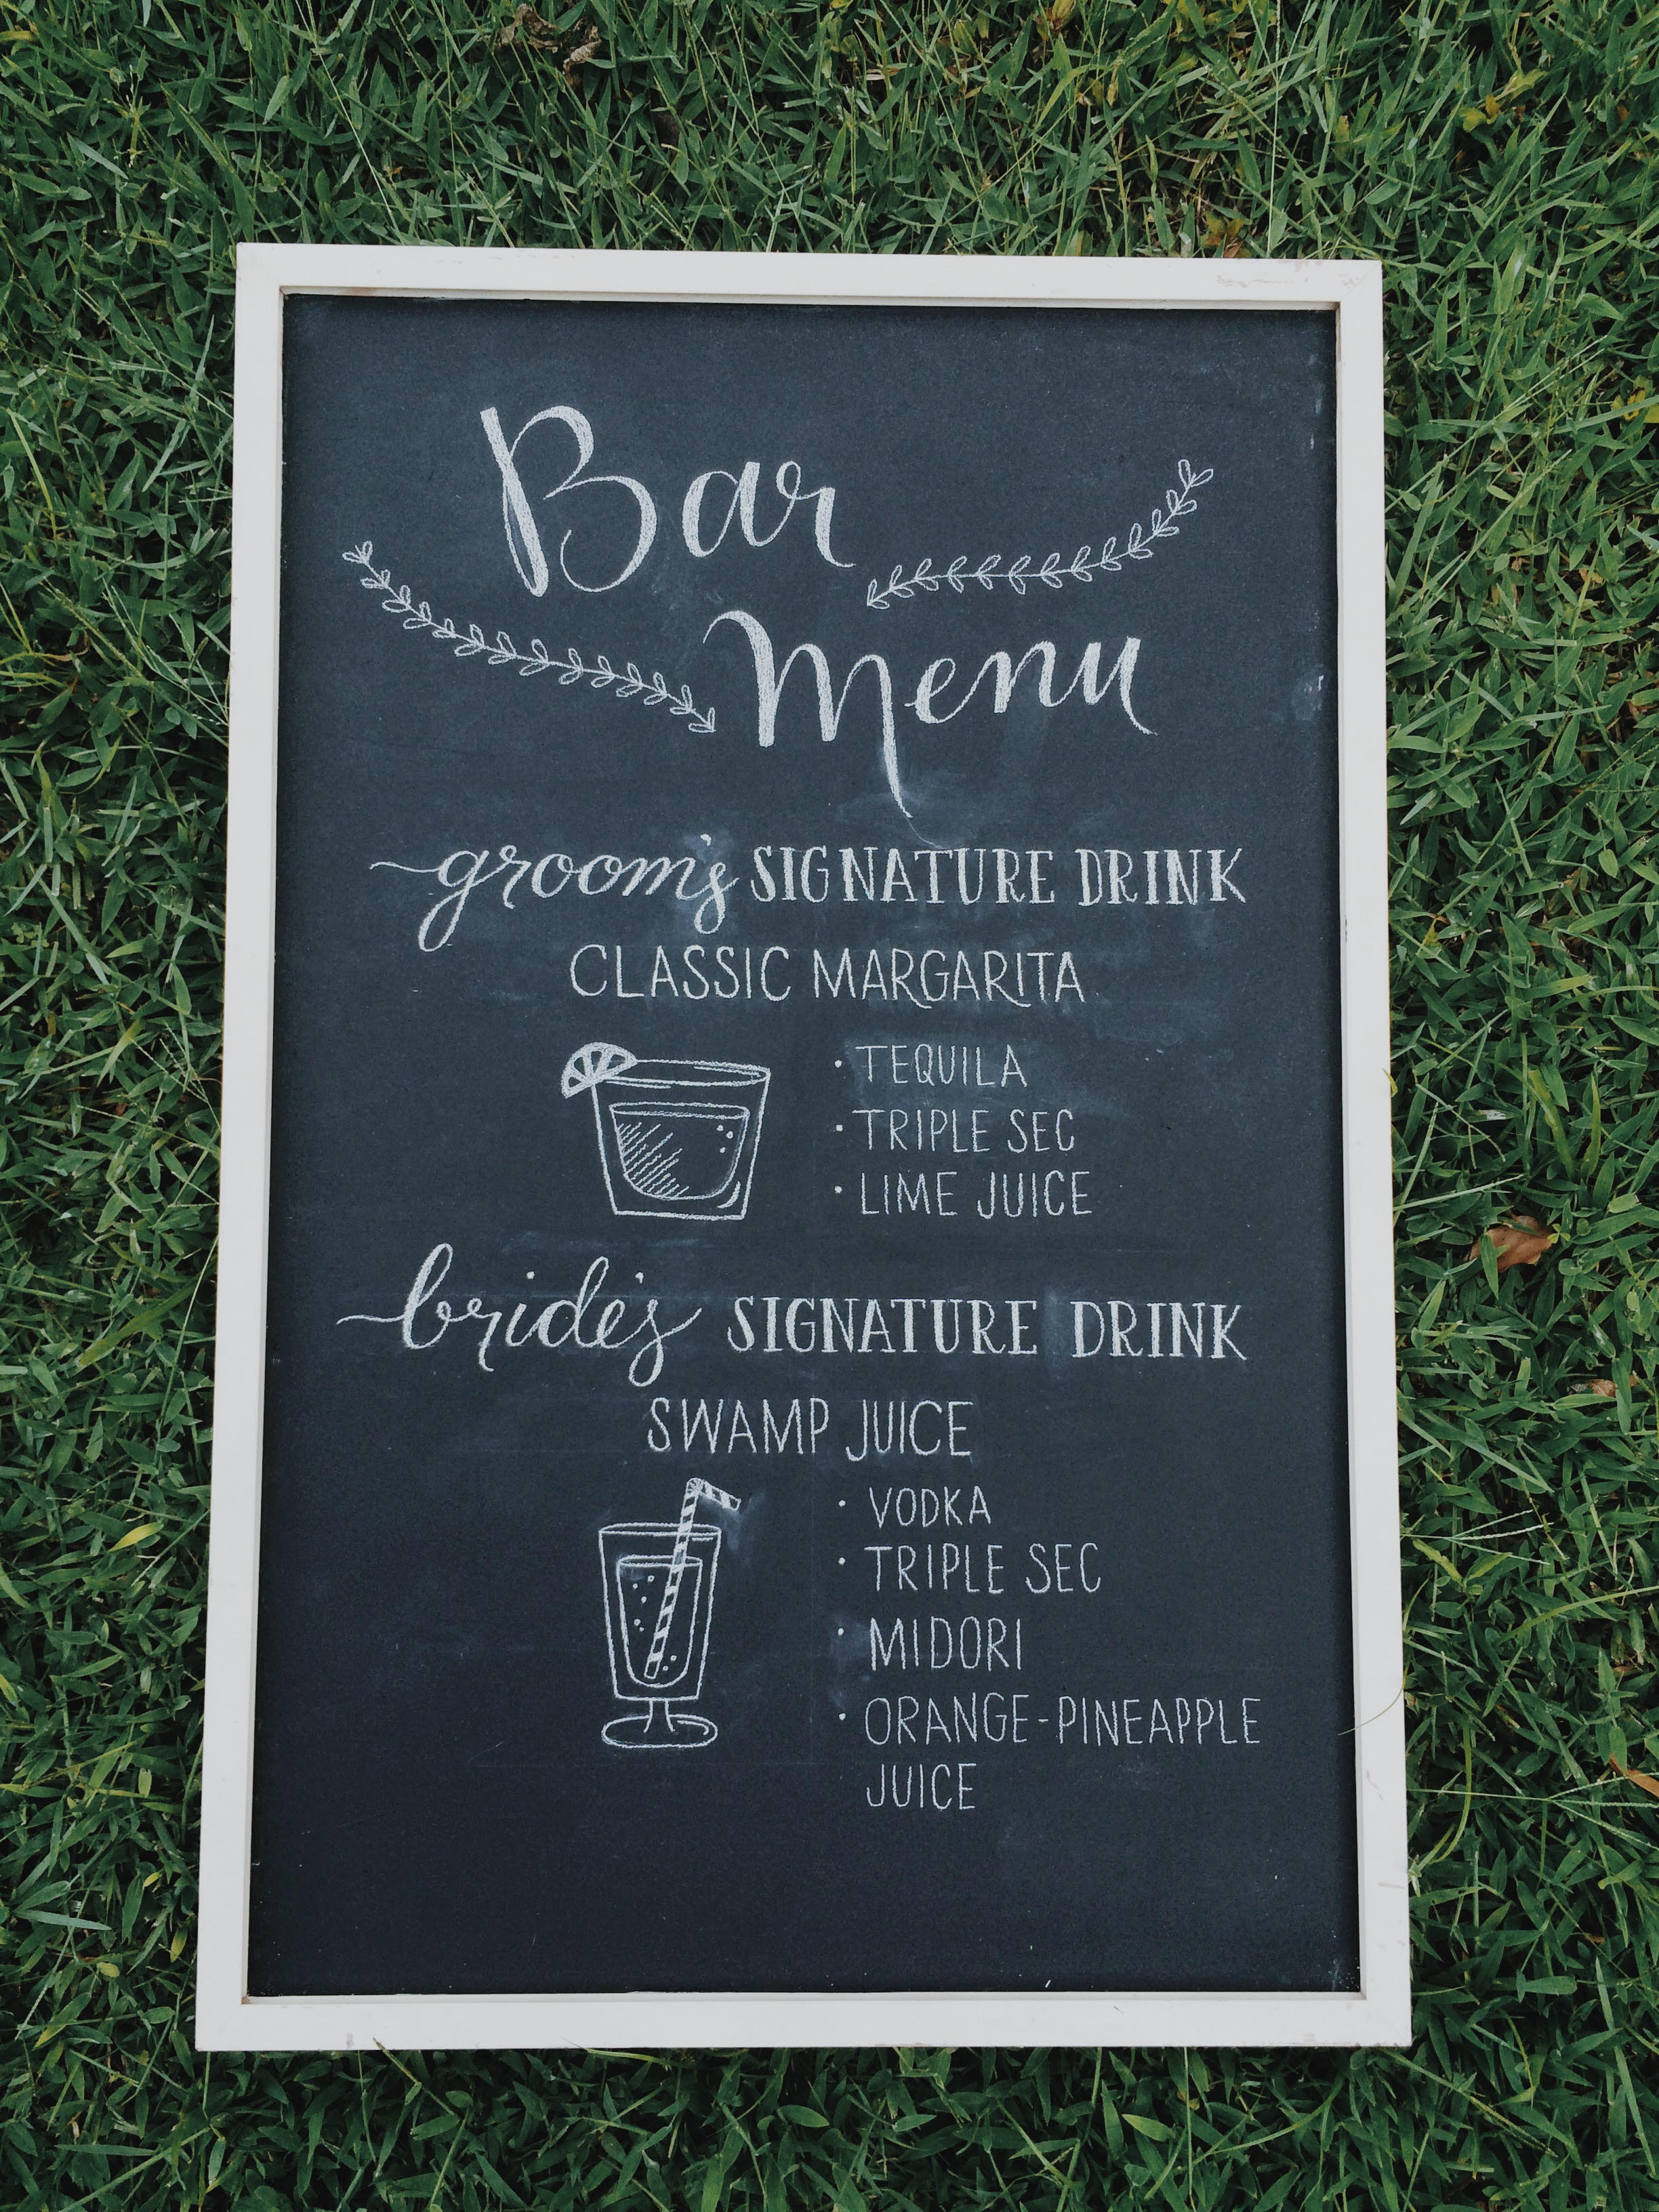 Bar
Menu
groom's SIGNATURE DRINK
CLASSIC MARGARITA
· TEQUILA
· TRIPLE SEC
· LIME JUICE
bride's SIGNATURE DRINK
SWAMP JUICE
· VODKA
· TRIPLE SEC
· MIDORI
· ORANGE-PINEAPPLE
JUICE